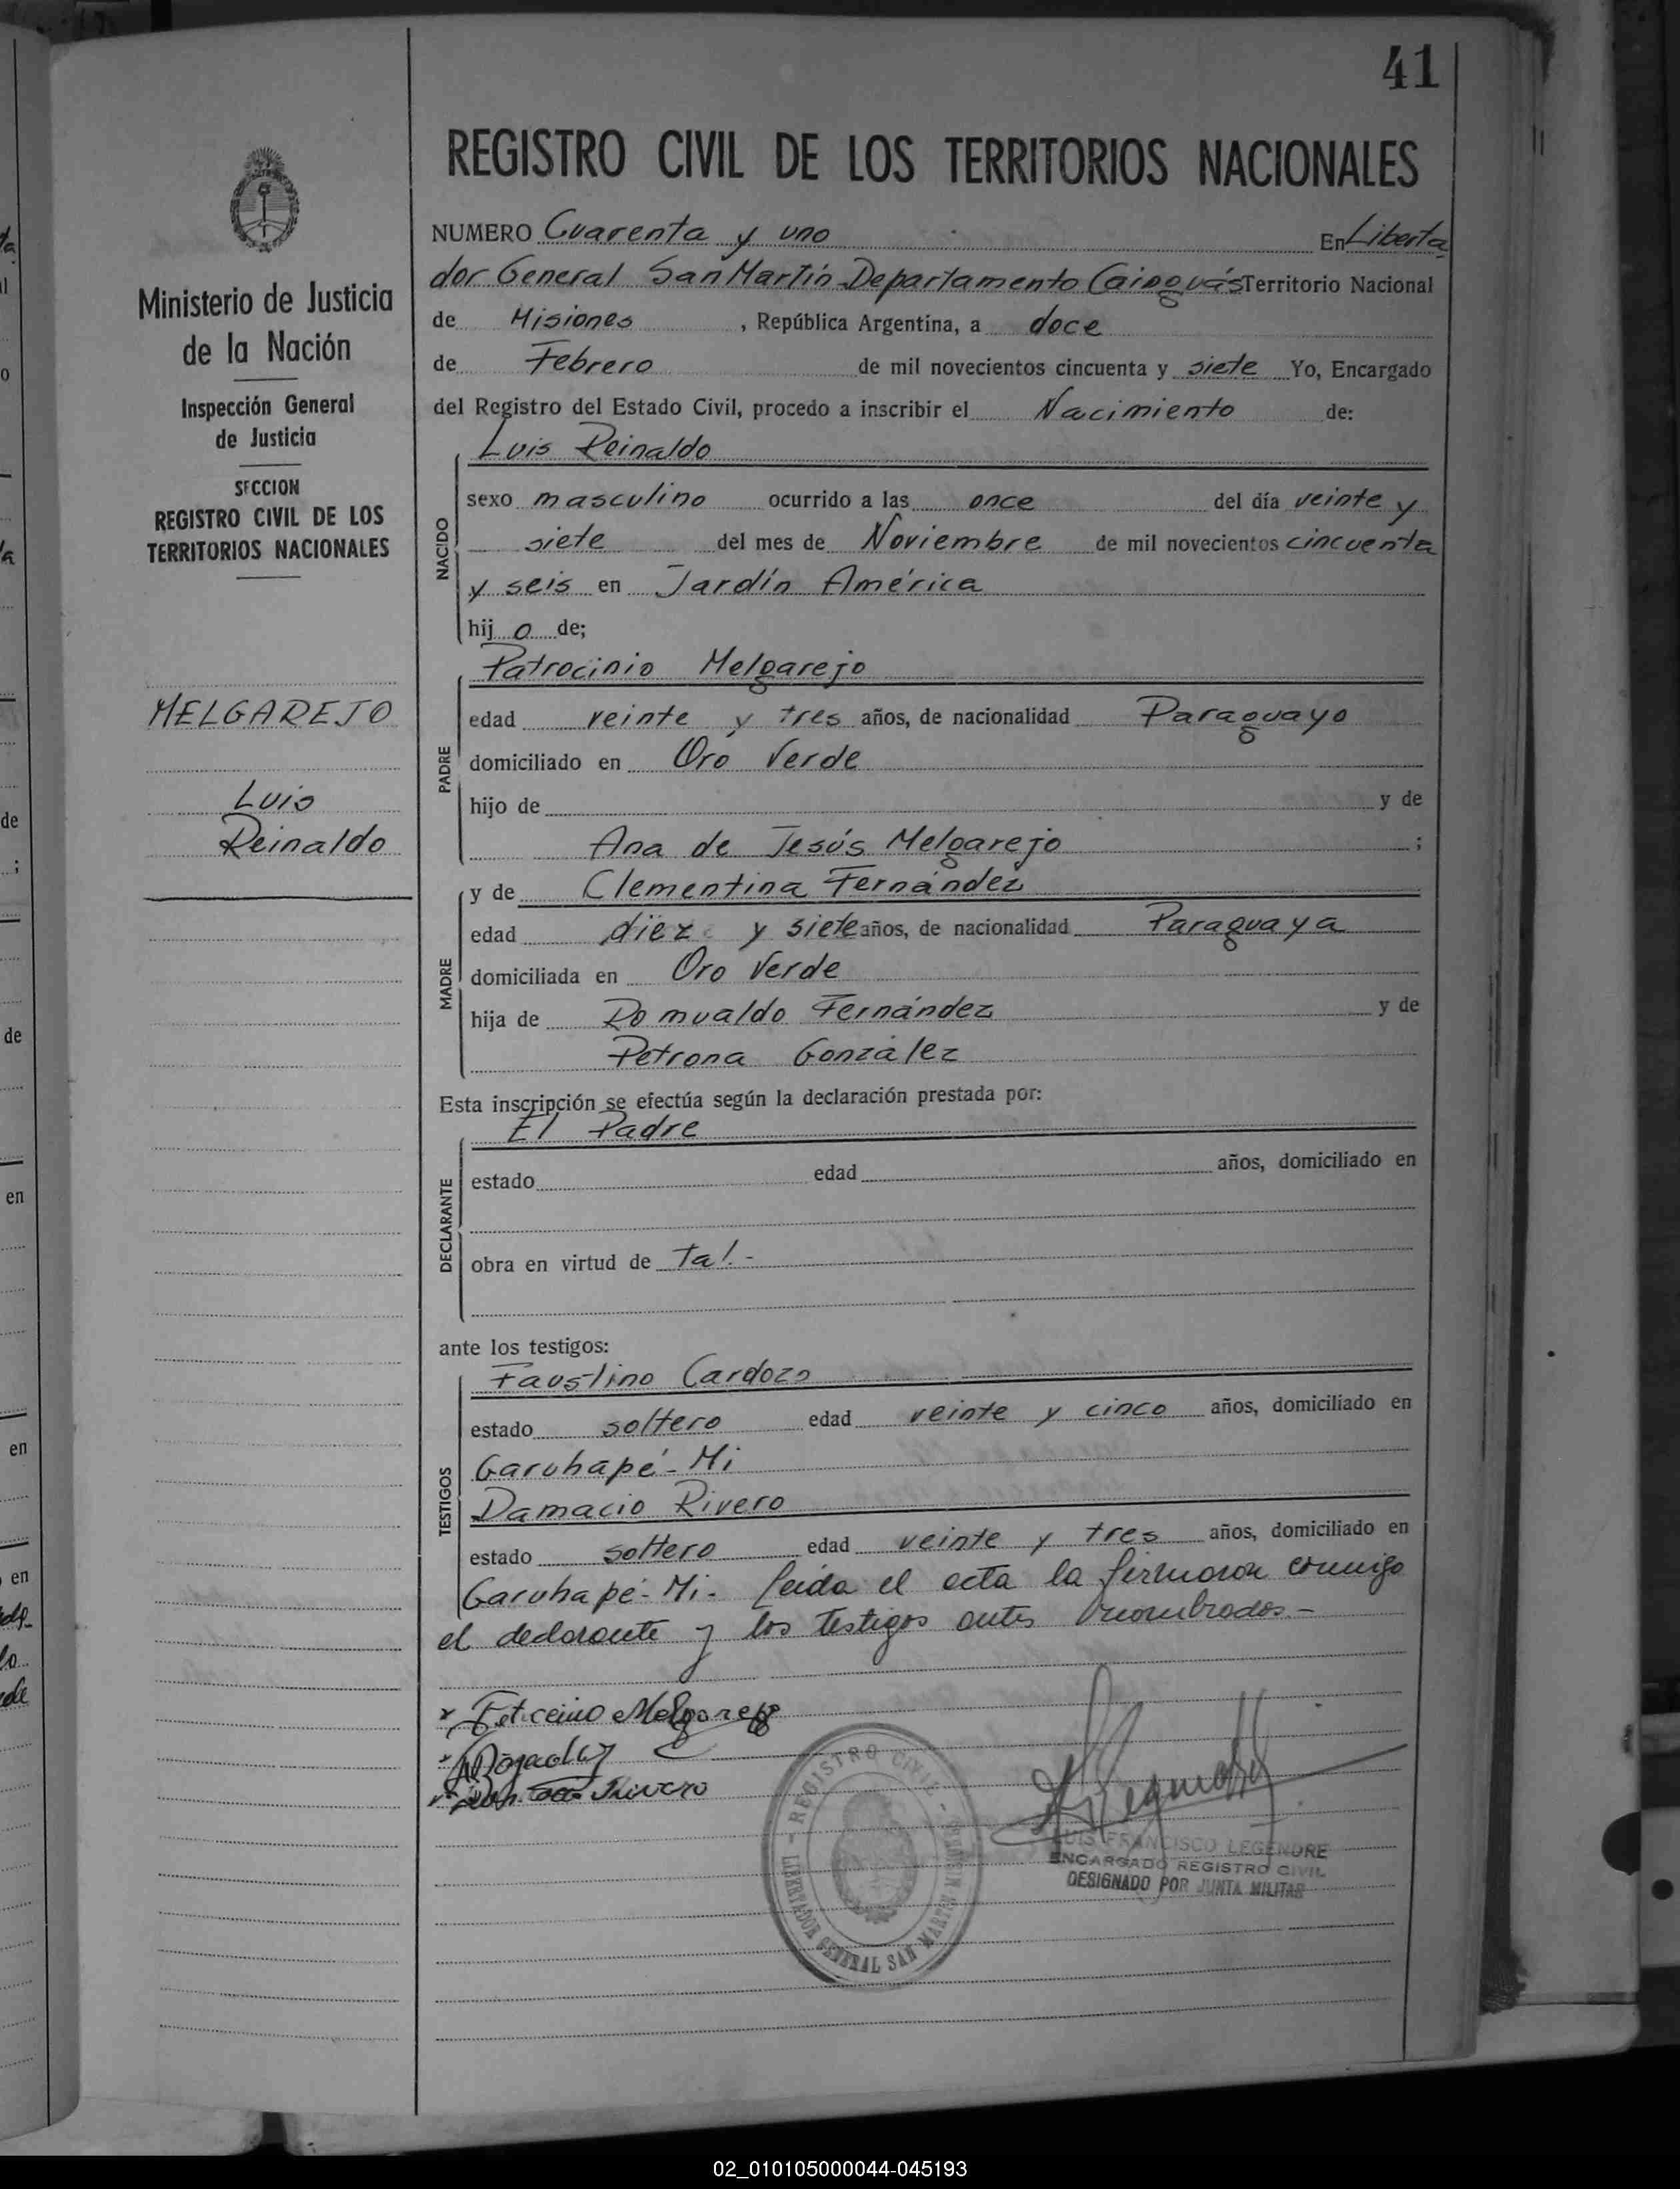 41
REGISTRO CIVIL DE LOS TERRITORIOS NACIONALES
Ministerio de Justicia
de la Nación
Inspección General
de Justicia
SECCION
REGISTRO CIVIL DE LOS
TERRITORIOS NACIONALES
MELGAREJO
Luis
Reinaldo
NUMERO Cuarenta y uno En Liberta
dor General San Martín Departamento Cainguás Territorio Nacional
de Misiones , República Argentina, a doce
de Febrero de mil novecientos cincuenta y siete Yo, Encargado
del Registro del Estado Civil, procedo a inscribir el Nacimiento de:
Luis Reinaldo
NACIDO
sexo masculino ocurrido a las once del día veinte y
siete del mes de Noviembre de mil novecientos cincuenta
y seis en Jardín América
hij o de;
Patrocinio Melgarejo
PADRE
edad veinte y tres años, de nacionalidad Paraguayo
domiciliado en Oro Verde
hijo de y de
Ana de Jesús Melgarejo ;
y de Clementina Fernández
MADRE
edad diez y siete años, de nacionalidad Paraguaya
domiciliada en Oro Verde
hija de Romualdo Fernández y de
Petrona González
Esta inscripción se efectúa según la declaración prestada por:
El Padre
DECLARANTE
estado edad años, domiciliado en
obra en virtud de tal.-
ante los testigos:
Faustino Cardozo
TESTIGOS
estado soltero edad veinte y cinco años, domiciliado en
Garuhapé-Mi
Damacio Rivero
estado soltero edad veinte y tres años, domiciliado en
Garuhapé-Mi- Leida el acta la firmaron conmigo
el declarante y los testigos antes nombrados.-
Melgarejo
Rivero
REGISTRO CIVIL
LIBERTADOR GENERAL SAN MARTIN
LUIS FRANCISCO LEGENDRE
ENCARGADO REGISTRO CIVIL
DESIGNADO POR JUNTA MILITAR
02_010105000044-045193